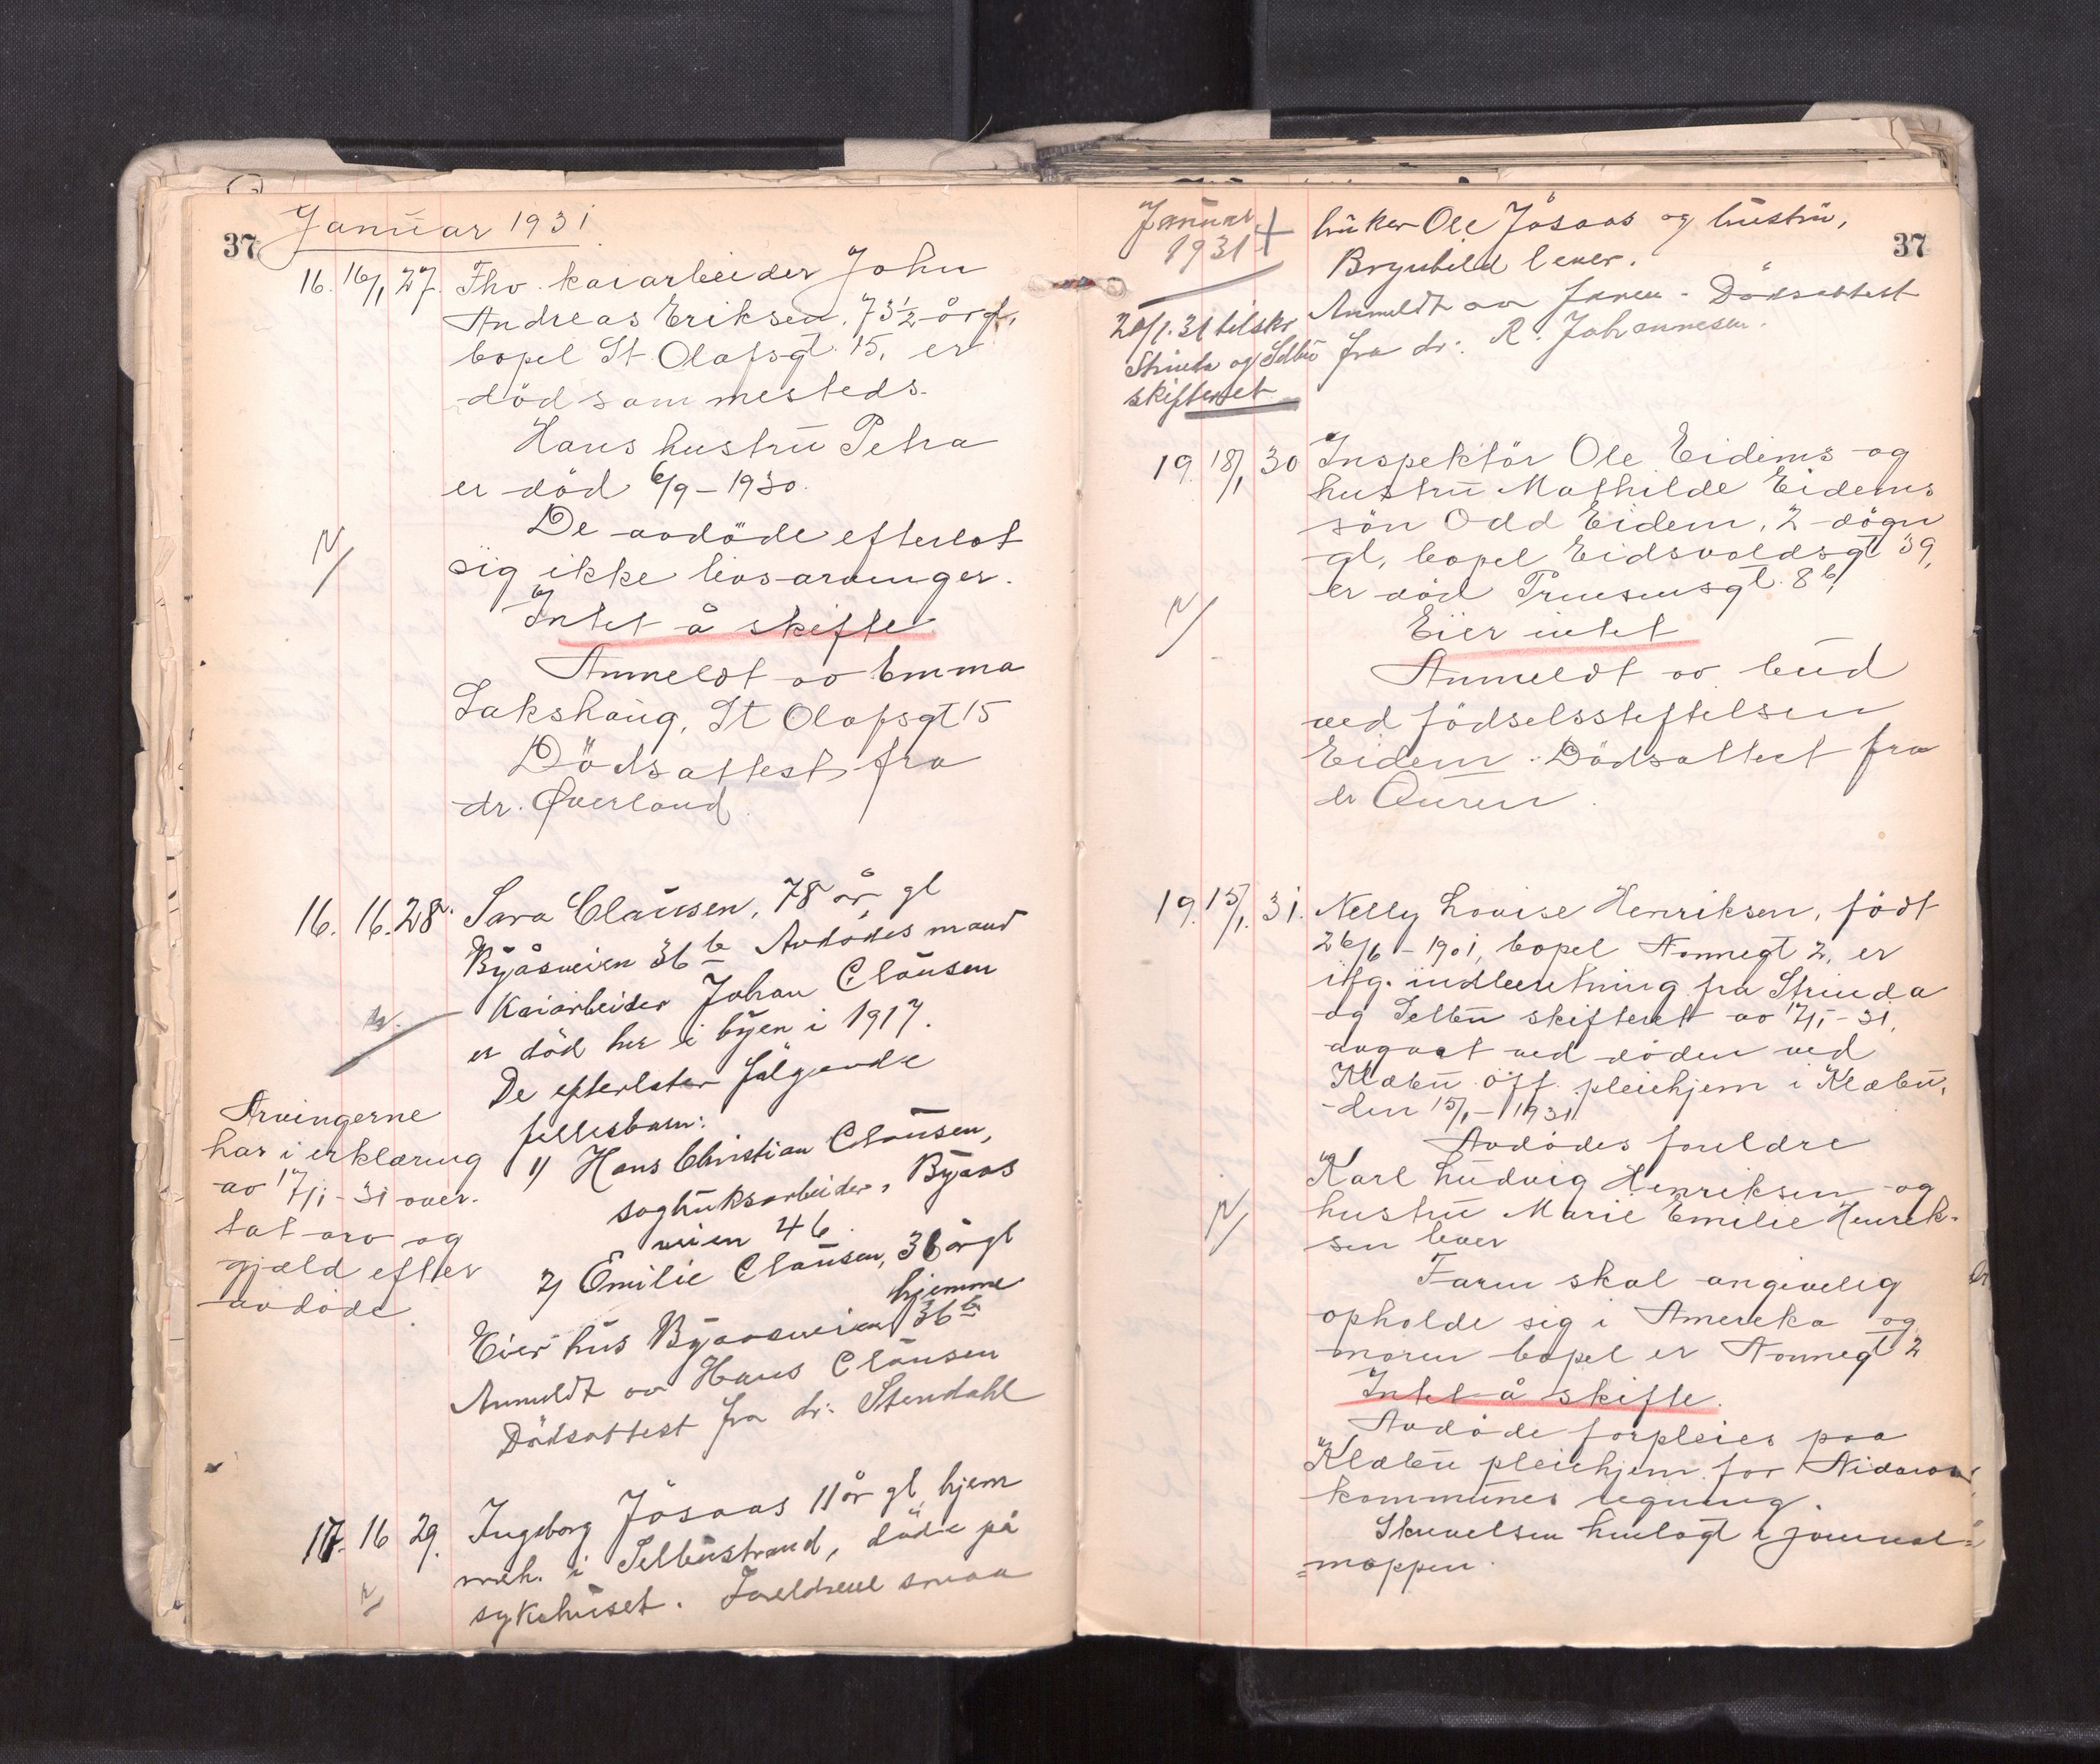 37
Januar 1931
16. 16/1 27. Fhv. kaiarbeider John
Andreas Eriksen, 73½ år gl,
bopel St. Olafsgt. 15, er
död sammesteds.
Hans hustru Petra
er död 6/9 - 1930.
De avdöde efterlot
sig ikke livsarvinger.
N/
Intet å skifte
Anmeldt av Emma
Lakshaug, St Olafsgt 15
Dödsattest fra
dr. Øverland.
16. 16. 28. Sara Clausen, 78 år gl
Byåsveien 36 b Avdödes mand
Kaiarbeider Johan Clausen
er död her i byen i 1917.
De efterlater fölgende
fellesbarn:
1/ Hans Christian Clausen,
sagbruksarbeider, Byaas
veien 46.
2/ Emilie Clausen, 36 år gl
hjemme
Eier hus Byaasveien 36 b
Anmeldt av Hans Clausen
Dödsattest fra dr: Stendahl
Arvingerne
har i erklæring
av 17/1 - 31 over-
tat arv og
gjæld efter
avdöde.
17. 16 29. Ingeborg Jösaas 11 år gl, hjem
meh. i Selbustrand, döde på
sykehuset. Foreldrene smaa
N/
37
Januar
1931
bruker Ole Jösaas og hustru,
Brynhild lever.
Anmeldt av faren - Dödsattest
fra dr: R. Johannesen.
20/1. 31 tilskr
Strinda og Selbu
skifteret
19. 18/1 30 Inspektör Ole Eidems og
hustru Mathilde Eidems
sön Odd Eidem, 2 dögn
gl, bopel Eidsvoldsgt 39,
er död Prinsensgt. 8 b,
N/
Eier intet
Anmeldt av bud
ved födselsstiftelsen
Eidem. Dödsattest fra
dr Auren.
19. 15/1. 31. Nelly Lovise Henriksen, födt
26/6 - 1901, bopel Nonnegt 2, er
ifg. indberetning fra Strinda
og Selbu skifteret av 17/1 - 31,
avgaat ved döden ved
Klæbu off. pleiehjem i Klæbu,
den 15/1 - 1931
Avdödes foreldre
Karl Ludvig Henriksen og
hustru Marie Emilie Henrik-
sen lever
N/
Faren skal angivelig
opholde sig i Amerika og
moren bopel er Nonnegt 2
Intet å skifte.
Avdöde forpleies paa
Klæbu pleiehjem for Nidaros
kommunes regning.
Skrivelsen henlagt i journal=
=mappen.